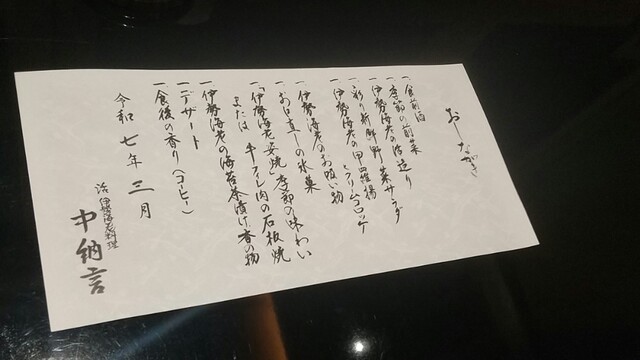 おしながき
一、食前酒
一、季節の前菜
一、伊勢海老の活造り
一、彩り新鮮野菜サラダ
一、伊勢海老の甲羅揚
とクリームコロッケ
一、伊勢海老のお吸い物
一、お口直しの氷菓
一、「伊勢海老姿焼」季節の味わい
または 牛フィレ肉の石板焼
一、伊勢海老の海苔茶漬け 香の物
一、デザート
一、食後の香り(コーヒー)
令和七年三月
活伊勢海老料理
中納言